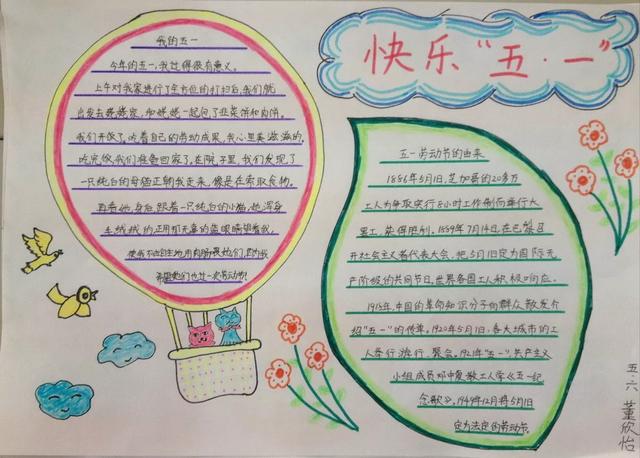 快乐“五·一”
我的五一
今年的五一,我过得很有意义。
上午对我家进行了全方位的打扫后,我们就
出发去姥姥家,和姥姥一起包了韭菜饼和肉饼。
我们开饭了,吃着自己的劳动成果,我心里美滋滋的。
吃完饭,我们准备回家了,在院子里,我们发现了
一只纯白的母猫正朝我走来,像是在索取食物。
再看他身后,跟着一只纯白的小猫,她浑身
毛绒绒的,正用那无辜的蓝眼睛望着我,
使我不由自主地用肉肠喂她们,因为我
希望她们也过一次劳动节!
五一劳动节的由来
1886年5月1日,芝加哥的20多万
工人为争取实行8小时工作制而举行大
罢工,获得胜利。1889年7月14日,在巴黎召
开社会主义者代表大会,把5月1日定为国际无
产阶级的共同节日,世界各国工人积极响应。
1918年,中国的革命知识分子向群众散发介
绍“五一”的传单。1920年5月1日,各大城市的工
人举行游行、聚会。1921年“五一”,共产主义
小组成员邓中夏教工人学《五一纪
念歌》,1949年12月将5月1日
定为法定的劳动节。
五·六 董欣怡